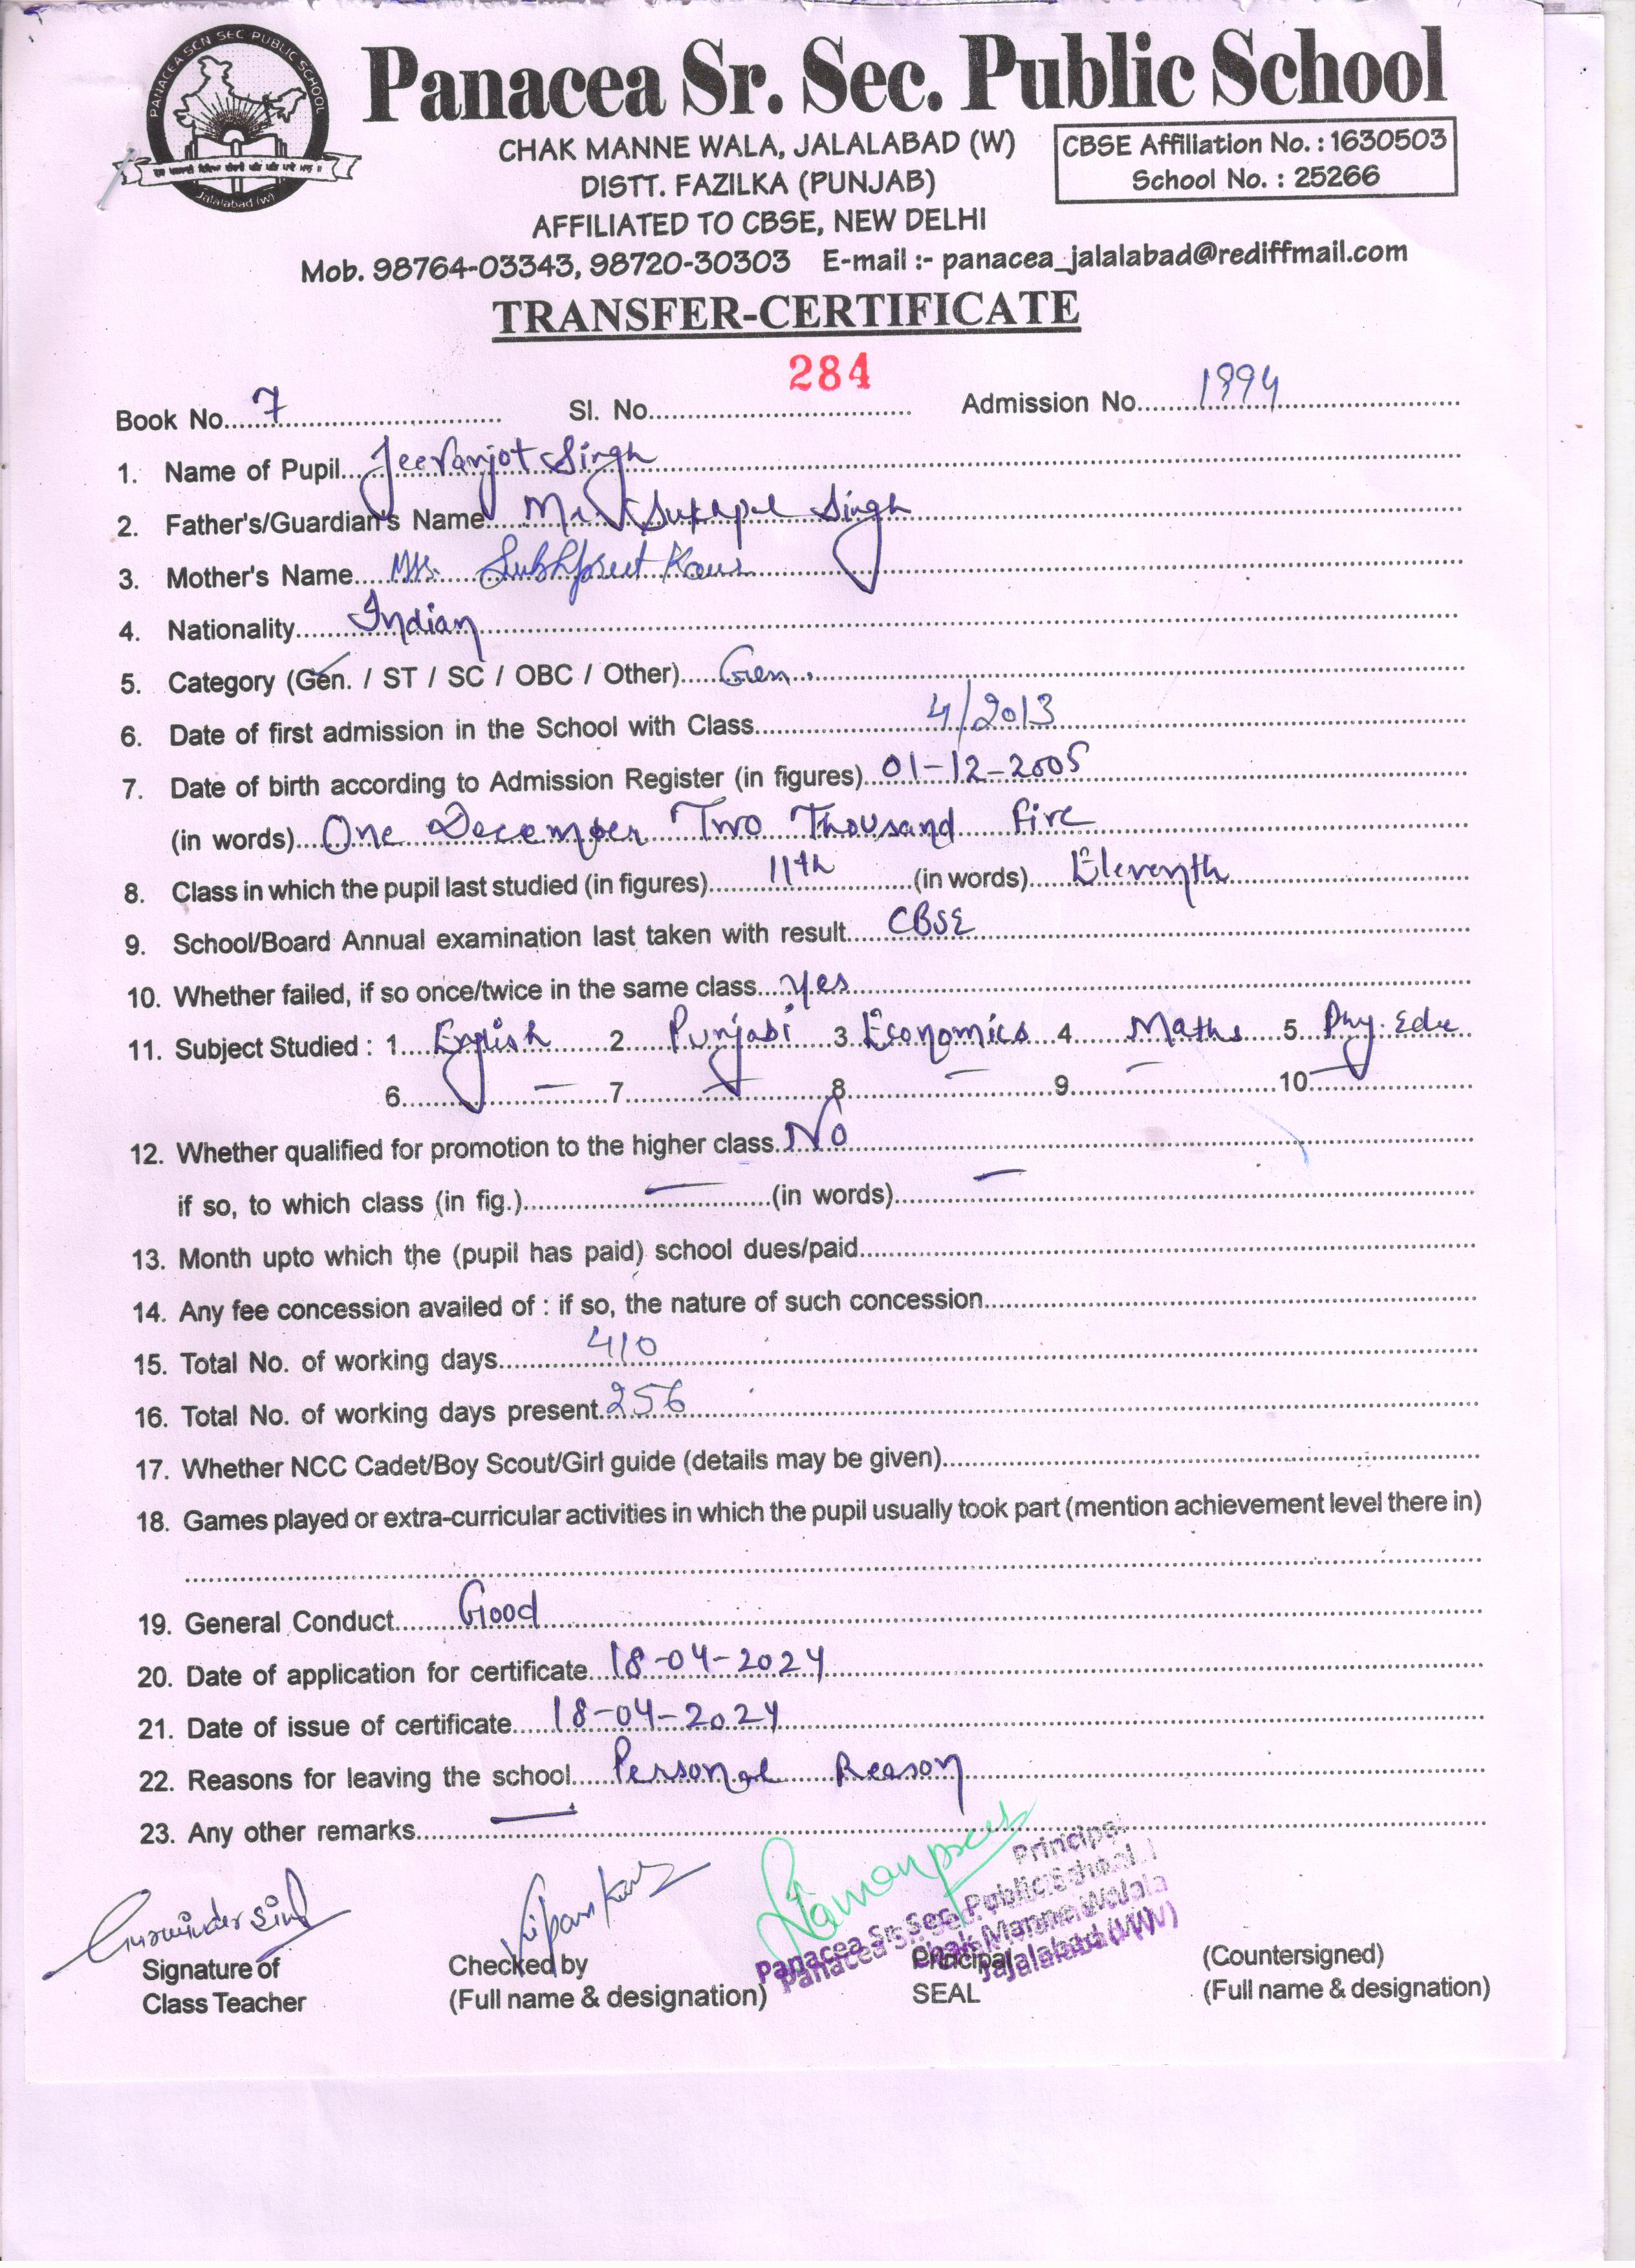 PANACEA SCN SEC PUBLIC SCHOOL
Jalalabad (w)
Panacea Sr. Sec. Public School
CHAK MANNE WALA, JALALABAD (W)
DISTT. FAZILKA (PUNJAB)
AFFILIATED TO CBSE, NEW DELHI
CBSE Affiliation No. : 1630503
School No. : 25266
Mob. 98764-03343, 98720-30303 E-mail :- panacea_jalalabad@rediffmail.com
TRANSFER-CERTIFICATE
Book No. 7 Sl. No. 284 Admission No. 1994
1. Name of Pupil Jeevanjot Singh
2. Father's/Guardian's Name Mr. Singh
3. Mother's Name Mrs. Kaur
4. Nationality Indian
5. Category (Gen. / ST / SC / OBC / Other) Gen.
6. Date of first admission in the School with Class 4/2013
7. Date of birth according to Admission Register (in figures) 01-12-2005
(in words) One December Two Thousand Five
8. Class in which the pupil last studied (in figures) 11th (in words) Eleventh
9. School/Board Annual examination last taken with result CBSE
10. Whether failed, if so once/twice in the same class Yes
11. Subject Studied : 1. English 2. Punjabi 3. Economics 4. Maths 5. Phy. Edu
6. — 7. — 8. — 9. — 10. —
12. Whether qualified for promotion to the higher class. No
if so, to which class (in fig.) — (in words) —
13. Month upto which the (pupil has paid) school dues/paid
14. Any fee concession availed of : if so, the nature of such concession
15. Total No. of working days 410
16. Total No. of working days present. 256
17. Whether NCC Cadet/Boy Scout/Girl guide (details may be given)
18. Games played or extra-curricular activities in which the pupil usually took part (mention achievement level there in)
19. General Conduct Good
20. Date of application for certificate 18-04-2024
21. Date of issue of certificate 18-04-2024
22. Reasons for leaving the school Personal Reason
23. Any other remarks —
Principal
Panacea Sr. Sec. Public School
Chak Manne Walala
Jajalabad (W)
Signature of
Class Teacher
Checked by
(Full name & designation)
Principal
SEAL
(Countersigned)
(Full name & designation)